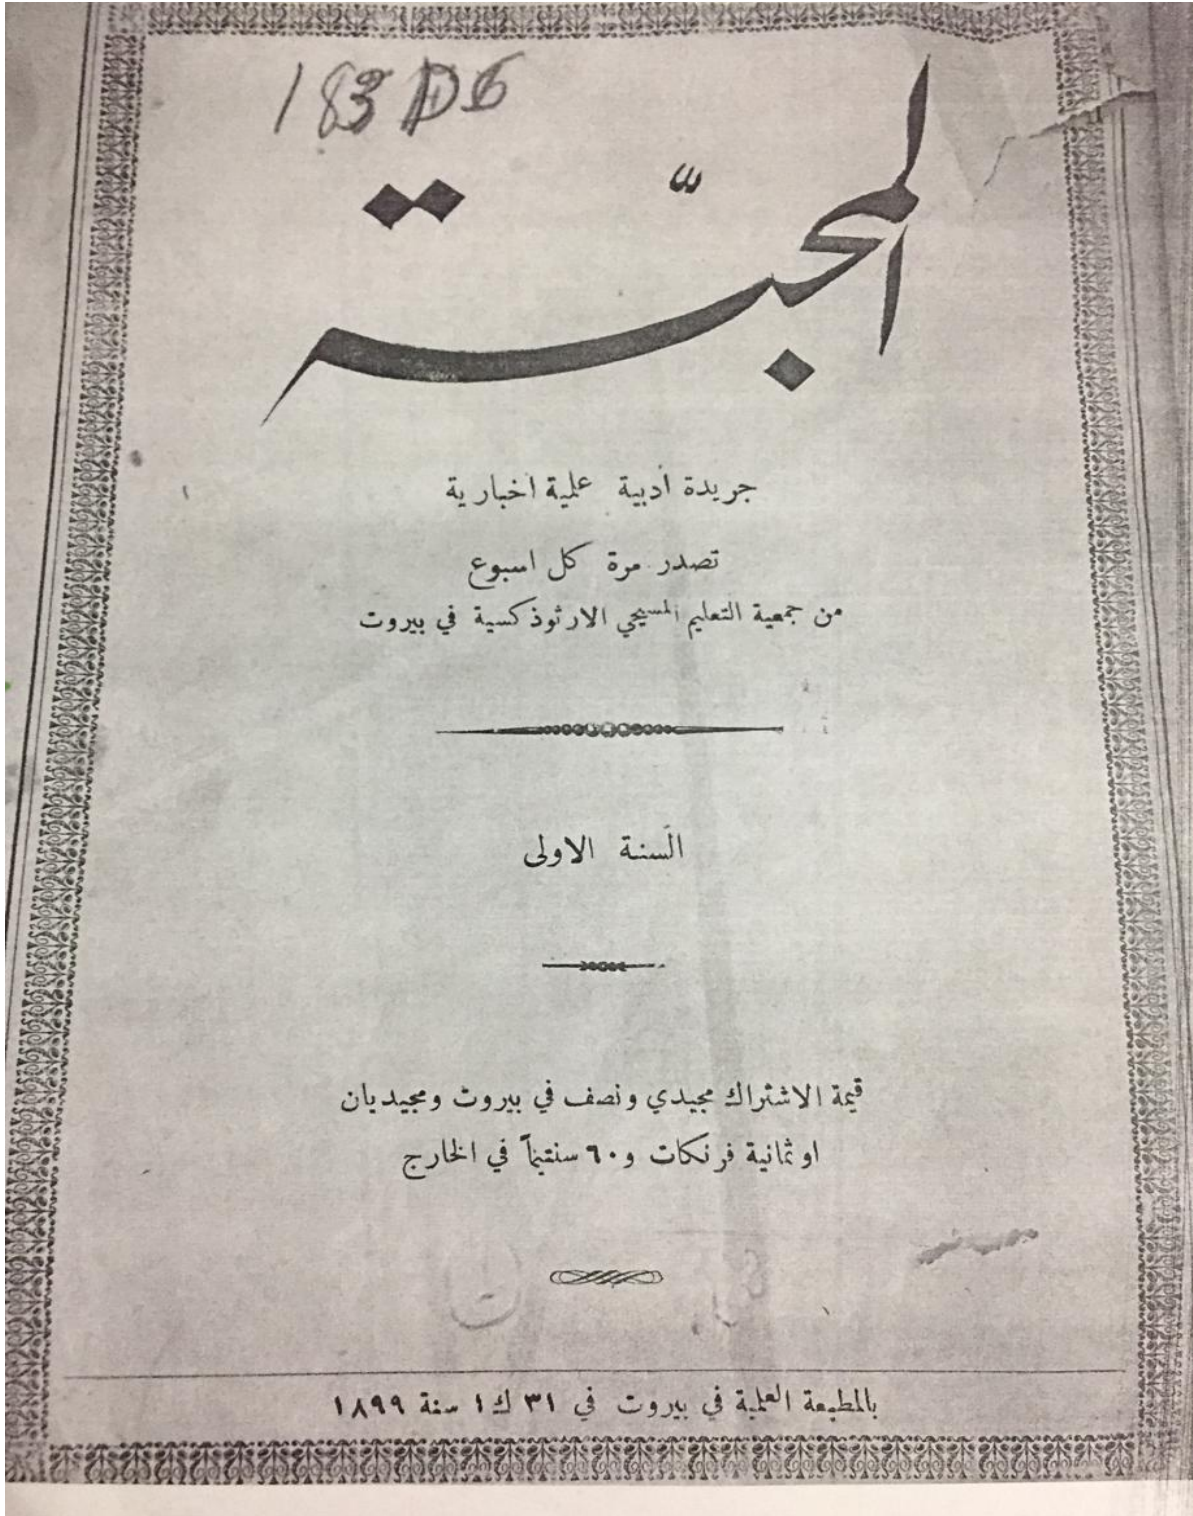 183
المحبّة
جريدة أدبية علمية اخبارية
تصدر مرة كل اسبوع
من جمعية التعليم المسيحي الارثوذكسية في بيروت
السنة الاولى
قيمة الاشتراك مجيدي ونصف في بيروت ومجيديان
او ثمانية فرنكات و٦٠ سنتيماً في الخارج
بالمطبعة العلمية في بيروت في ٣١ ك١ سنة ١٨٩٩